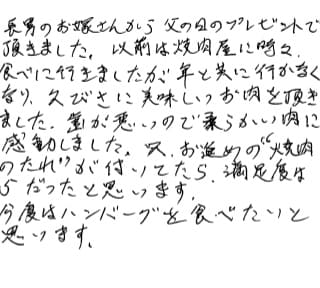 長男のお嫁さんから父の日のプレゼントで
頂きました。以前は焼肉屋に時々、
食べに行きましたが年と共に行かなく
なり、久びさに美味しいお肉を頂き
ました。歯が悪いので柔らかい肉に
感動しました。又、お進めの“焼肉
のたれ”が付いてたら、満足度は
5だったと思います。
今度はハンバーグを食べたいと
思います。